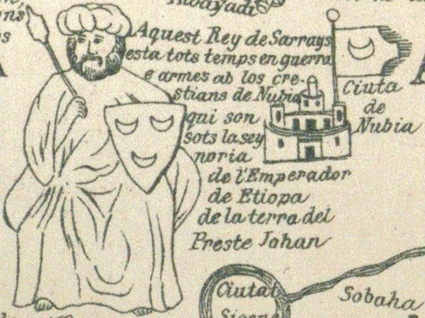 Aquest Rey de Sarrays
esta tots temps en guerra
e armes ab los cre-
stians de Nubia
qui son
sots la sey
noria
de l'Emperador
de Etiopa
de la terra del
Preste Johan
Ciuta
de
Nubia
Ciutat
Sobaha